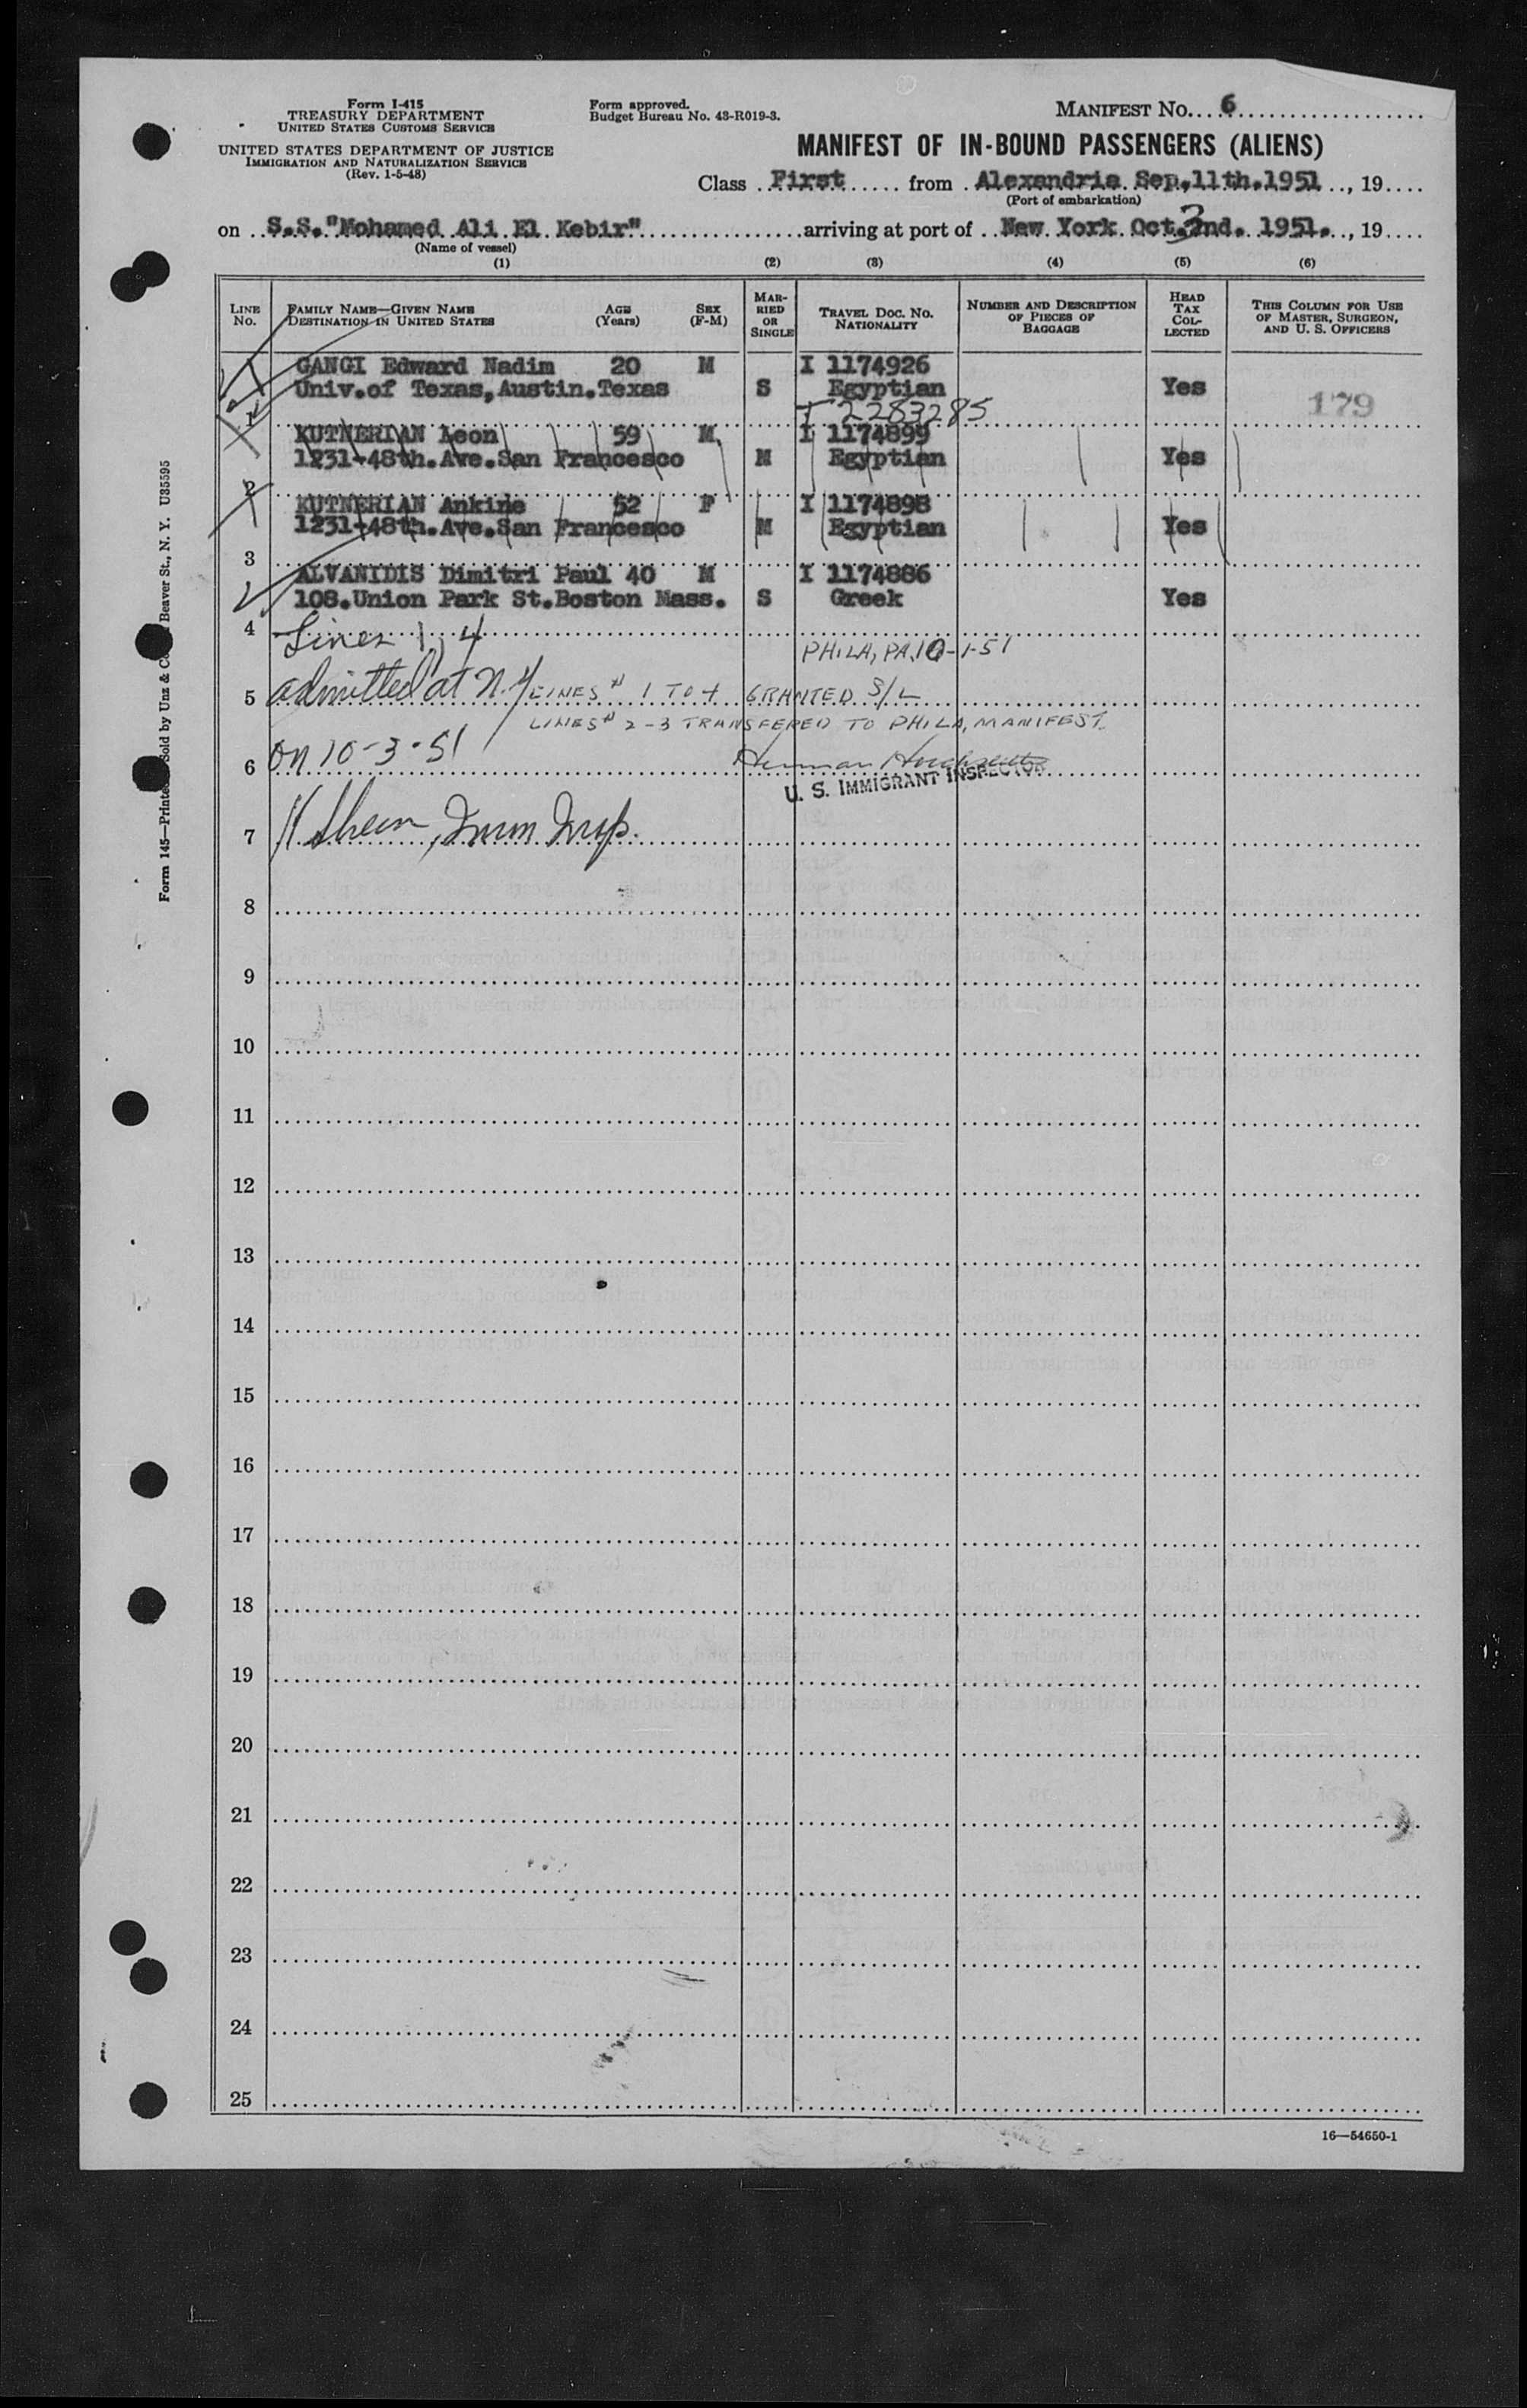 Form I-415
TREASURY DEPARTMENT
UNITED STATES CUSTOMS SERVICE
UNITED STATES DEPARTMENT OF JUSTICE
IMMIGRATION AND NATURALIZATION SERVICE
(Rev. 1-5-48)
Form approved.
Budget Bureau No. 43-R019-3.
MANIFEST No. 6
MANIFEST OF IN-BOUND PASSENGERS (ALIENS)
Class First from Alexandria Sep.11th.1951, 19
(Port of embarkation)
on S.S."Mohamed Ali El Kebir" arriving at port of New York Oct.2nd. 1951., 19
3
(Name of vessel)
(1) (2) (3) (4) (5) (6)
LINE No. FAMILY NAME—GIVEN NAME DESTINATION IN UNITED STATES AGE (Years) SEX (F-M) MARRIED OR SINGLE TRAVEL DOC. No. NATIONALITY NUMBER AND DESCRIPTION OF PIECES OF BAGGAGE HEAD TAX COLLECTED THIS COLUMN FOR USE OF MASTER, SURGEON, AND U. S. OFFICERS
GANGI Edward Nadim 20 M I 1174926
Univ.of Texas,Austin.Texas S Egyptian Yes 179
1 T 2283285
KUTNERIAN Leon 59 M I 1174899
1231-48th.Ave.San Francesco M Egyptian Yes
2
KUTNERIAN Ankine 52 F I 1174898
1231-48th.Ave.San Francesco M Egyptian Yes
3
ALVANIDIS Dimitri Paul 40 M I 1174886
108.Union Park St.Boston Mass. S Greek Yes
4 Lines 1, 4 PHILA, PA, 10-1-51
5 admitted at N.Y LINES # 1 TO 4 GRANTED S/L
LINES # 2-3 TRANSFERED TO PHILA, MANIFEST.
6 on 10-3-51 Herman
U. S. IMMIGRANT INSPECTOR
7
8
9
10
11
12
13
14
15
16
17
18
19
20
21
22
23
24
25
16—54650-1
Form 145—Printed Sold by Unz & Co Beaver St., N. Y. U35595